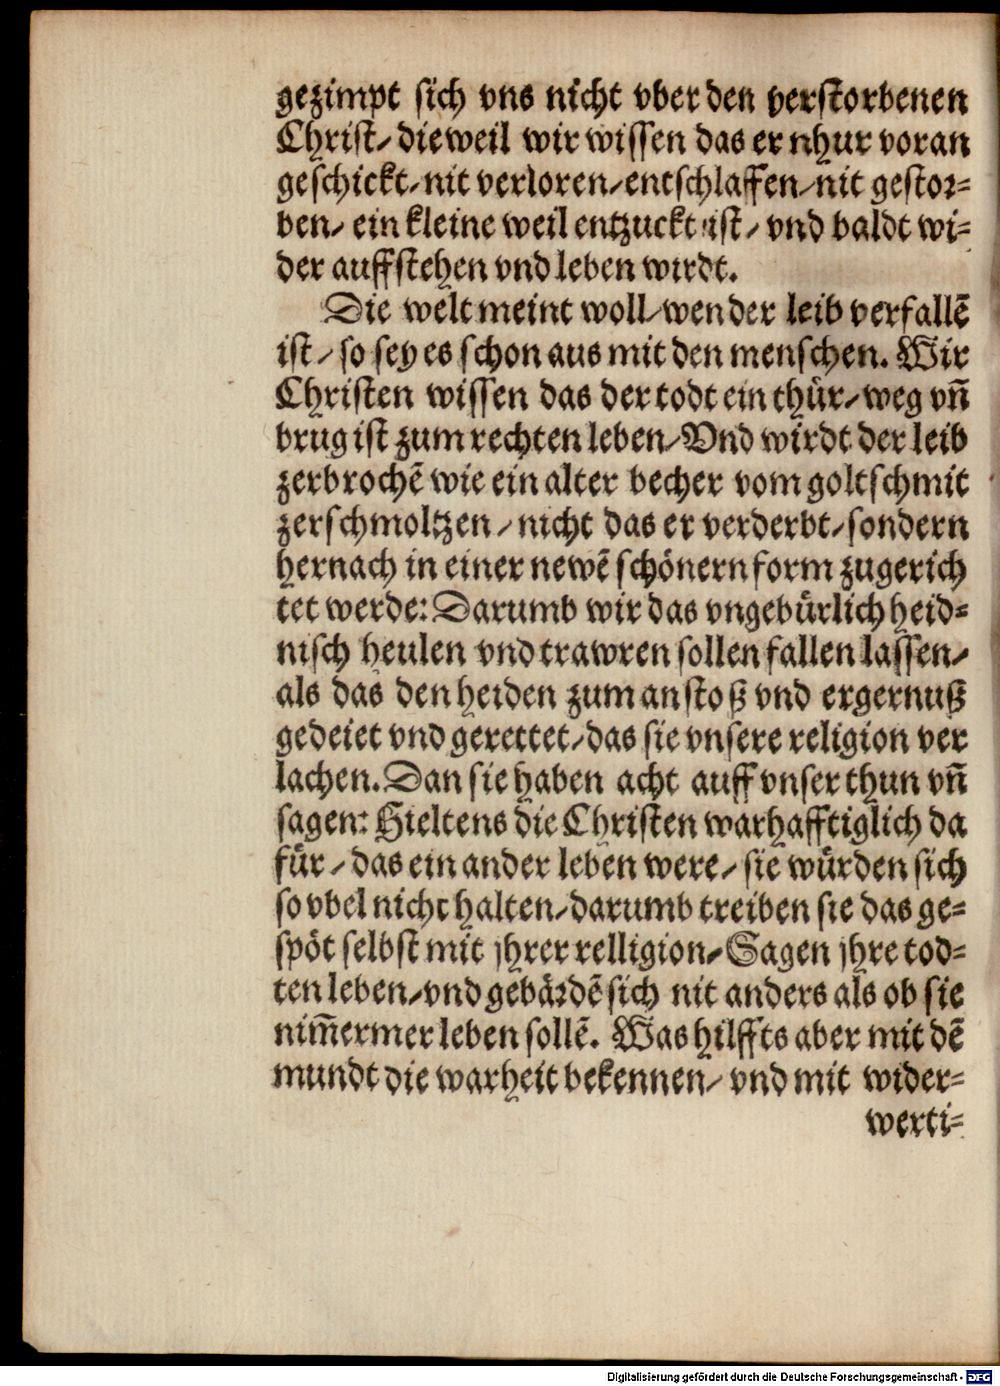 gezimpt sich vns nicht vber den verstorbenen
Christ/ dieweil wir wissen das er nhur voran
geschickt/ nit verloren/ entschlaffen/ nit gestor=
ben/ ein kleine weil entzuckt ist/ vnd baldt wi=
der auffstehen vnd leben wirdt.
Die welt meint woll/ wen der leib verfallẽ
ist/ so sey es schon aus mit den menschen. Wir
Christen wissen das der todt ein thür/ weg vñ
brug ist zum rechten leben/ Vnd wirdt der leib
zerbrochẽ wie ein alter becher vom goltschmit
zerschmoltzen/ nicht das er verderbt/ sondern
hernach in einer newẽ schönern form zugerich
tet werde: Darumb wir das vngebürlich heid=
nisch heulen vnd trawren sollen fallen lassen/
als das den heiden zum anstoß vnd ergernuß
gedeiet vnd gerettet/ das sie vnsere religion ver
lachen. Dan sie haben acht auff vnser thun vñ
sagen: Hieltens die Christen warhafftiglich da
für/ das ein ander leben were/ sie würden sich
so vbel nicht halten/ darumb treiben sie das ge=
spöt selbst mit jhrer relligion/ Sagen jhre tod=
ten leben/ vnd gebärdẽ sich nit anders als ob sie
nim̃ermer leben sollẽ. Was hilffts aber mit dẽ
mundt die warheit bekennen/ vnd mit wider=
werti=
Digitalisierung gefördert durch die Deutsche Forschungsgemeinschaft - DFG